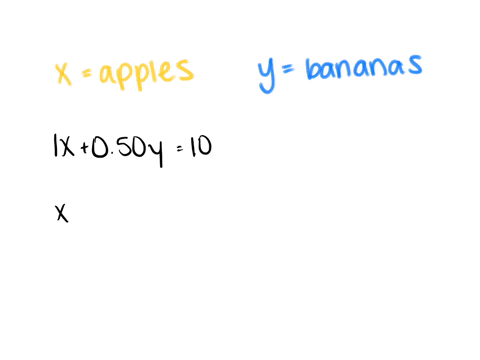 x = apples y = bananas
1x + 0.50y = 10
x